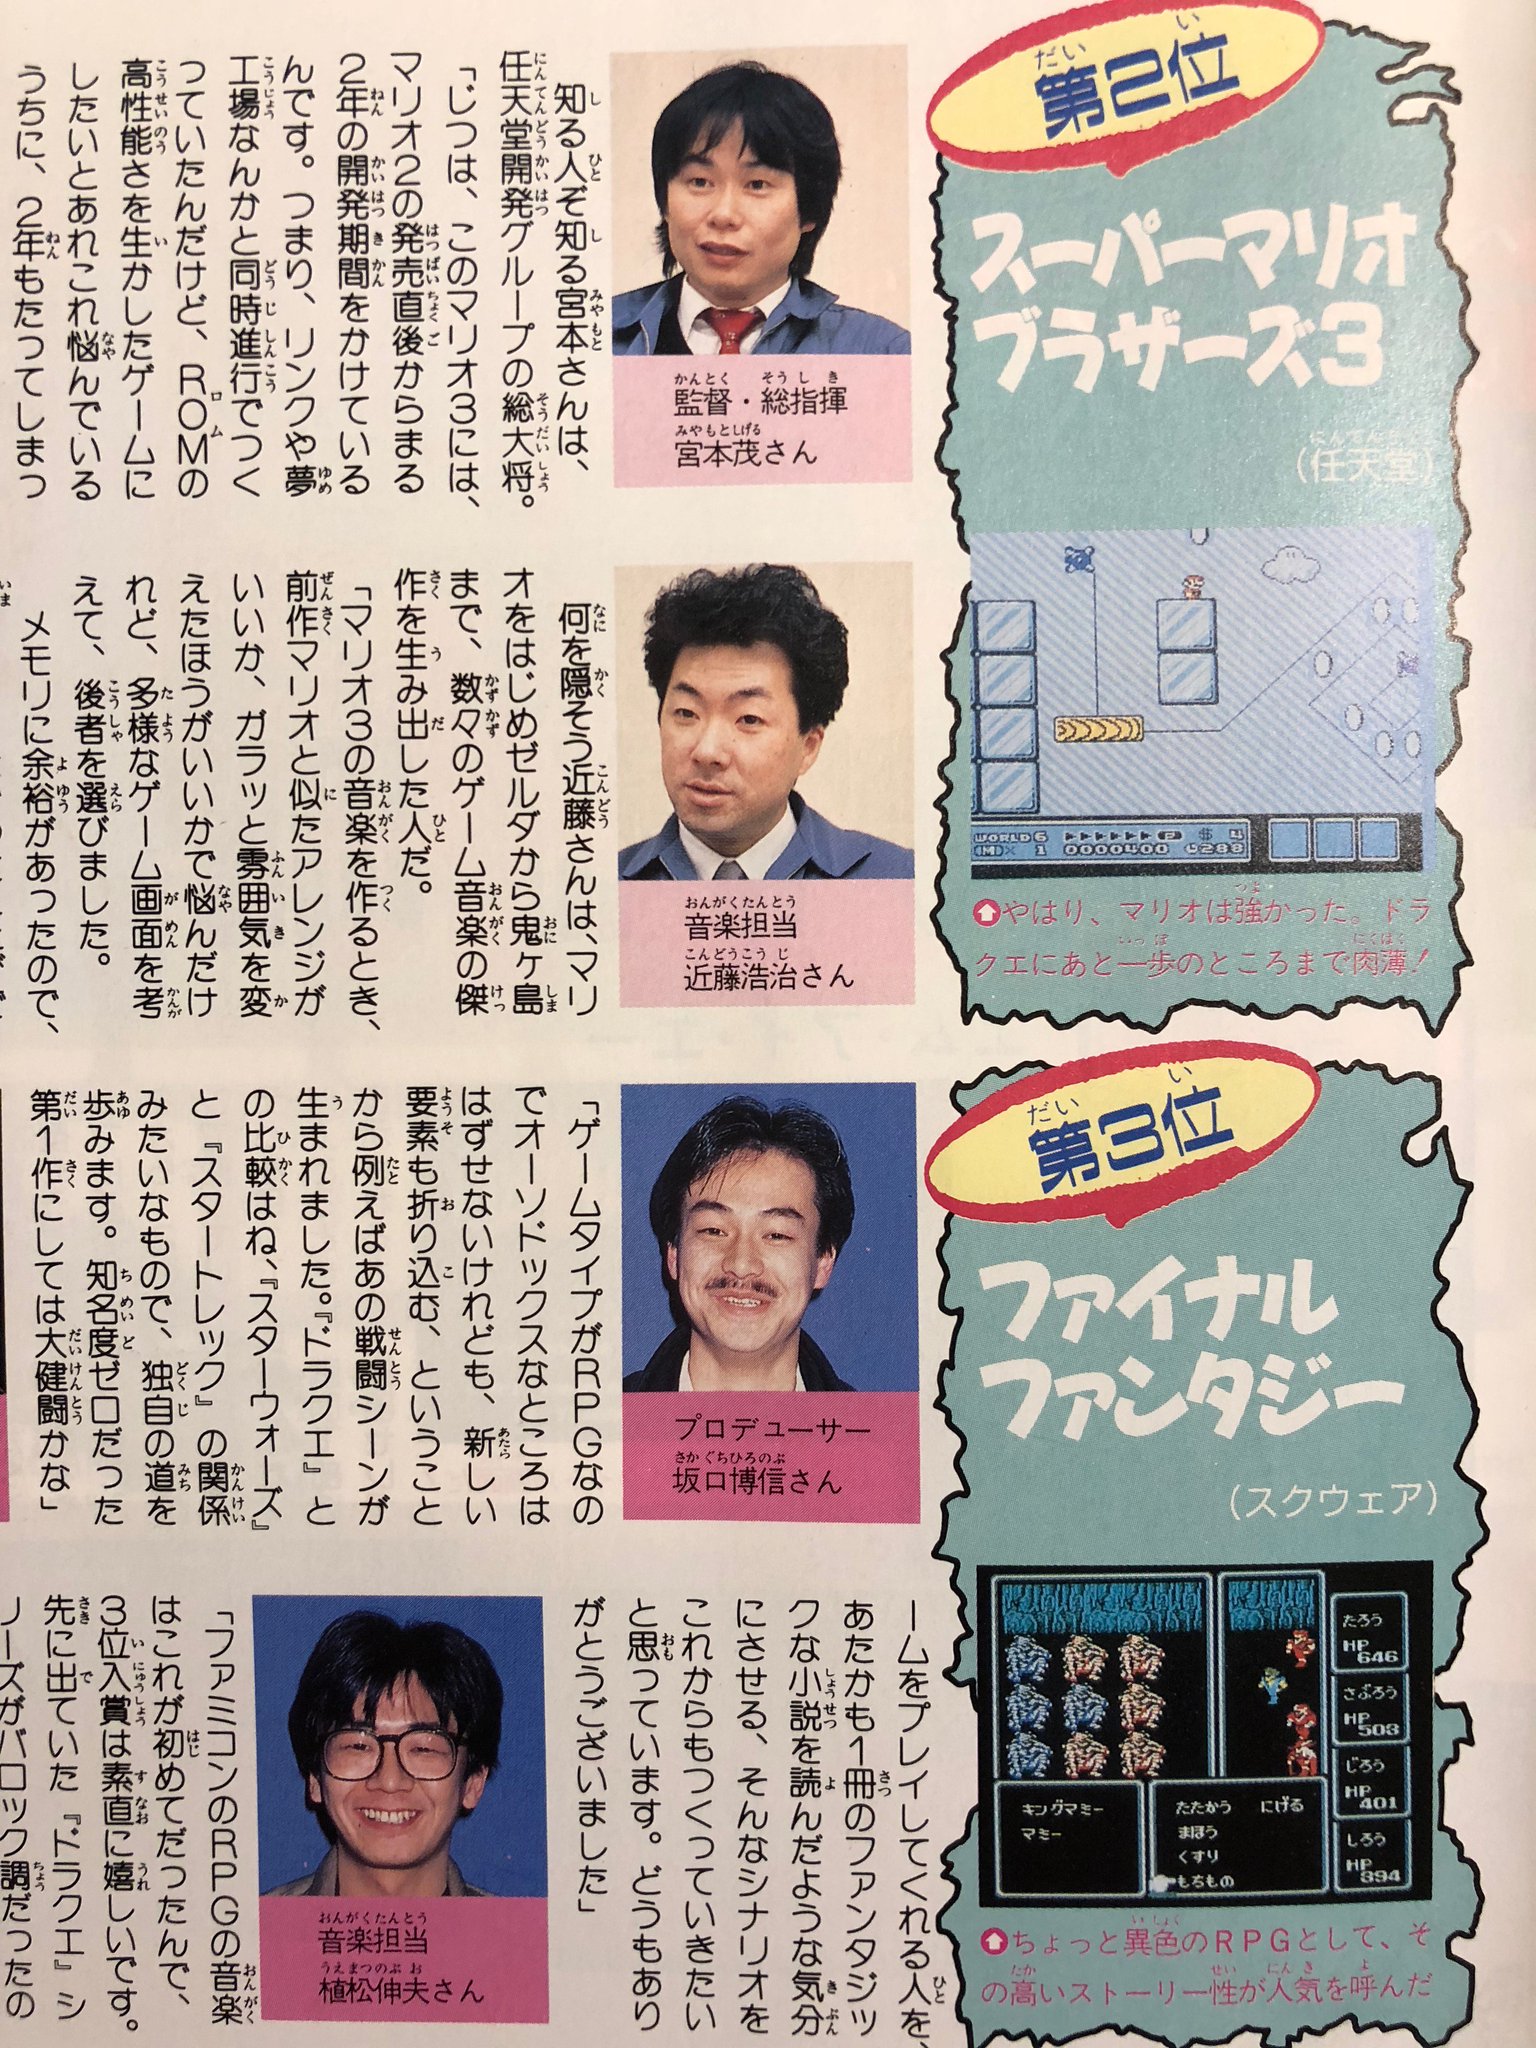 第2位
スーパーマリオ
ブラザーズ3
(任天堂)
WORLD 6 P $ 4
(M)× 1 0000400 288
やはり、マリオは強かった。ドラ
クエにあと一歩のところまで肉薄!
監督・総指揮
宮本茂さん
知る人ぞ知る宮本さんは、
任天堂開発グループの総大将。
「じつは、このマリオ3には、
マリオ2の発売直後からまる
2年の開発期間をかけている
んです。つまり、リンクや夢
工場なんかと同時進行でつく
っていたんだけど、ROMの
高性能さを生かしたゲームに
したいとあれこれ悩んでいる
うちに、2年もたってしまっ
音楽担当
近藤浩治さん
何を隠そう近藤さんは、マリ
オをはじめゼルダから鬼ヶ島
まで、数々のゲーム音楽の傑
作を生み出した人だ。
「マリオ3の音楽を作るとき、
前作マリオと似たアレンジが
いいか、ガラッと雰囲気を変
えたほうがいいかで悩んだけ
れど、多様なゲーム画面を考
えて、後者を選びました。
メモリに余裕があったので、
第3位
ファイナル
ファンタジー
(スクウェア)
たろう
HP
646
さぶろう
HP
503
じろう
HP
401
しろう
HP
394
キングマミー
マミー
たたかう にげる
まほう
くすり
もちもの
ちょっと異色のRPGとして、そ
の高いストーリー性が人気を呼んだ
プロデューサー
坂口博信さん
「ゲームタイプがRPGなの
でオーソドックスなところは
はずせないけれども、新しい
要素も折り込む、ということ
から例えばあの戦闘シーンが
生まれました。『ドラクエ』と
の比較はね、『スターウォーズ』
と『スタートレック』の関係
みたいなもので、独自の道を
歩みます。知名度ゼロだった
第1作にしては大健闘かな」
ームをプレイしてくれる人を、
あたかも1冊のファンタジッ
クな小説を読んだような気分
にさせる、そんなシナリオを
これからもつくっていきたい
と思っています。どうもあり
がとうございました」
音楽担当
植松伸夫さん
「ファミコンのRPGの音楽
はこれが初めてだったんで、
3位入賞は素直に嬉しいです。
先に出ていた『ドラクエ』シ
リーズがバロック調だったの